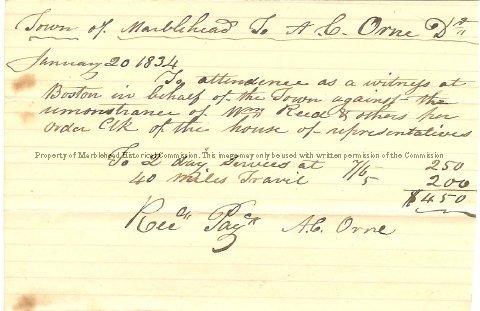 Town of Marblehead To A C. Orne Dr
January 20 1834
To attendence as a witness at
Boston in behalf of the Town against the
remonstrance of Wm Reed & others per
order Clk of the house of representatives
Property of Marblehead Historical Commission. This image may only be used with written permission of the Commission
To 2 days services at 7/6 250
40 miles Travil 5 200
$450
Recd Payt A. C. Orne